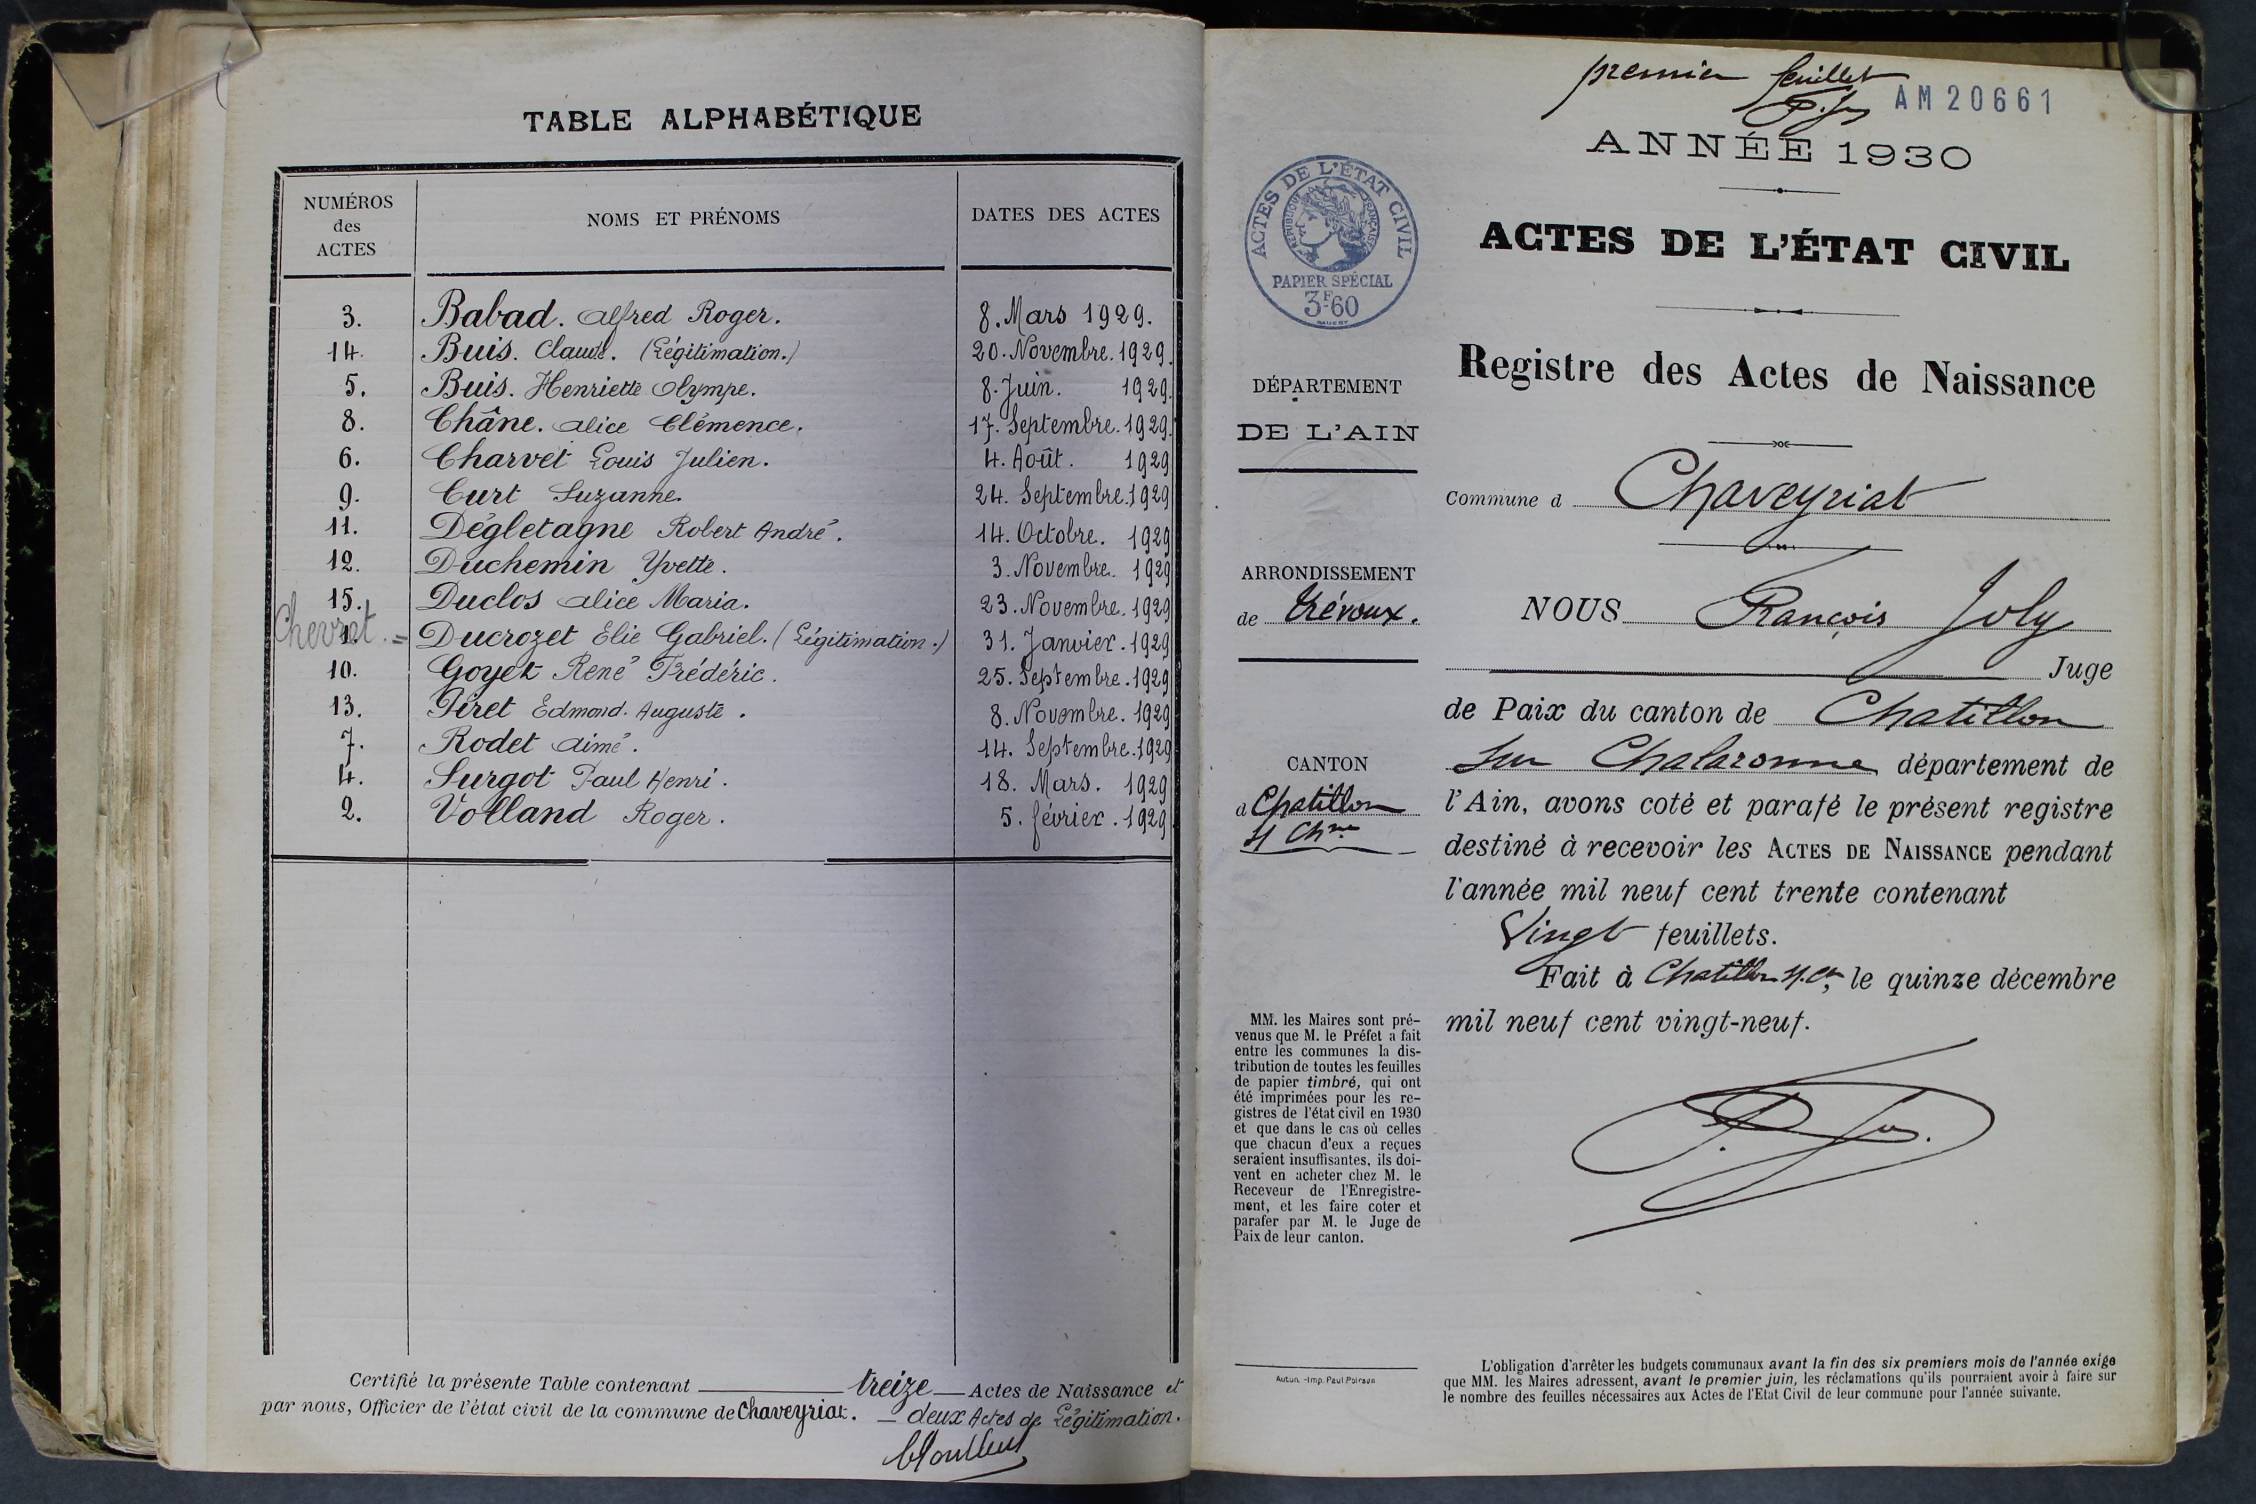 TABLE ALPHABÉTIQUE
NUMÉROS des ACTES NOMS ET PRÉNOMS DATES DES ACTES
3. Babad. Alfred Roger. 8. Mars 1929.
14. Buis. Claude. (Légitimation.) 20. Novembre. 1929.
5. Buis. Henriette Olympe. 8. Juin. 1929.
8. Châne. Alice Clémence. 17. Septembre. 1929.
6. Charvet Louis Julien. 4. Août. 1929
9. Curt Suzanne. 24. Septembre. 1929
11. Dégletagne Robert André. 14. Octobre. 1929
12. Duchemin Yvette. 3. Novembre. 1929
15. Duclos Alice Maria. 23. Novembre. 1929
Chevret 1. = Ducrozet Elie Gabriel. (Légitimation.) 31. Janvier. 1929
10. Goyet René Frédéric. 25. Septembre. 1929
13. Piret Edmond. Auguste. 8. Novembre. 1929
7. Rodet Aimé. 14. Septembre. 1929
4. Surgot Paul Henri. 18. Mars. 1929
2. Volland Roger. 5. février. 1929
Certifié la présente Table contenant treize Actes de Naissance et
par nous, Officier de l'état civil de la commune de Chaveyriat. — deux Actes de Légitimation.
premier feuillet
AM20661
ANNÉE 1930
ACTES DE L'ÉTAT CIVIL
RÉPUBLIQUE FRANÇAISE
PAPIER SPÉCIAL
3F60
ACTES DE L'ÉTAT CIVIL
Registre des Actes de Naissance
DÉPARTEMENT
DE L'AIN
Commune d Chaveyriat
ARRONDISSEMENT
de Trévoux.
CANTON
d Chatillon
s/ Chne
NOUS François Joly
Juge
de Paix du canton de Chatillon
sur Chalaronne département de
l'Ain, avons coté et parafé le présent registre
destiné à recevoir les ACTES DE NAISSANCE pendant
l'année mil neuf cent trente contenant
Vingt feuillets.
Fait à Chatillon s/. Cne, le quinze décembre
mil neuf cent vingt-neuf.
MM. les Maires sont pré-
venus que M. le Préfet a fait
entre les communes la dis-
tribution de toutes les feuilles
de papier timbré, qui ont
été imprimées pour les re-
gistres de l'état civil en 1930
et que dans le cas où celles
que chacun d'eux a reçues
seraient insuffisantes, ils doi-
vent en acheter chez M. le
Receveur de l'Enregistre-
ment, et les faire coter et
parafer par M. le Juge de
Paix de leur canton.
Autun. -Imp. Paul Poirson
L'obligation d'arrêter les budgets communaux avant la fin des six premiers mois de l'année exige
que MM. les Maires adressent, avant le premier juin, les réclamations qu'ils pourraient avoir à faire sur
le nombre des feuilles nécessaires aux Actes de l'Etat Civil de leur commune pour l'année suivante.